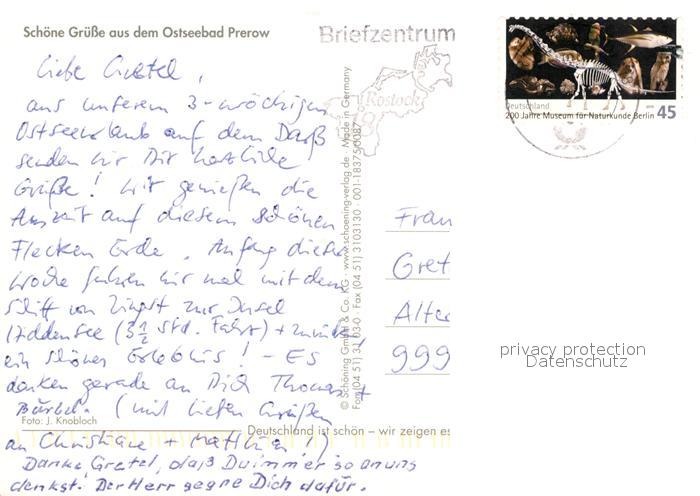 Schöne Grüße aus dem Ostseebad Prerow
Briefzentrum
Rostock
18
Deutschland
200 Jahre Museum für Naturkunde Berlin 45
Liebe Gretel,
aus unserem 3-wöchigen
Ostseeurlaub auf dem Darß
senden wir Dir herzliche
Grüße! Wir genießen die
Auszeit auf diesem schönen
Flecken Erde. Anfang dieser
Woche fuhren wir mal mit dem
Schiff von Zingst zur Insel
Hiddensee (3 1/2 Std. Fahrt) + zurück,
ein schönes Erlebnis! - Es
denken gerade an Dich Thomas +
Bärbel. (mit lieben Grüßen
an Christiane + Matthias!)
Danke, Gretel, daß Du immer so an uns
denkst. Der Herr segne Dich dafür.
Foto: J. Knobloch
Deutschland ist schön – wir zeigen es
© Schöning GmbH & Co. KG · www.schoening-verlag.de · Made in Germany
Fon (04 51) 3 10 3-0 · Fax (04 51) 3103130 · 001-18375/0087
Frau
Gret
Alte
999
privacy protection
Datenschutz